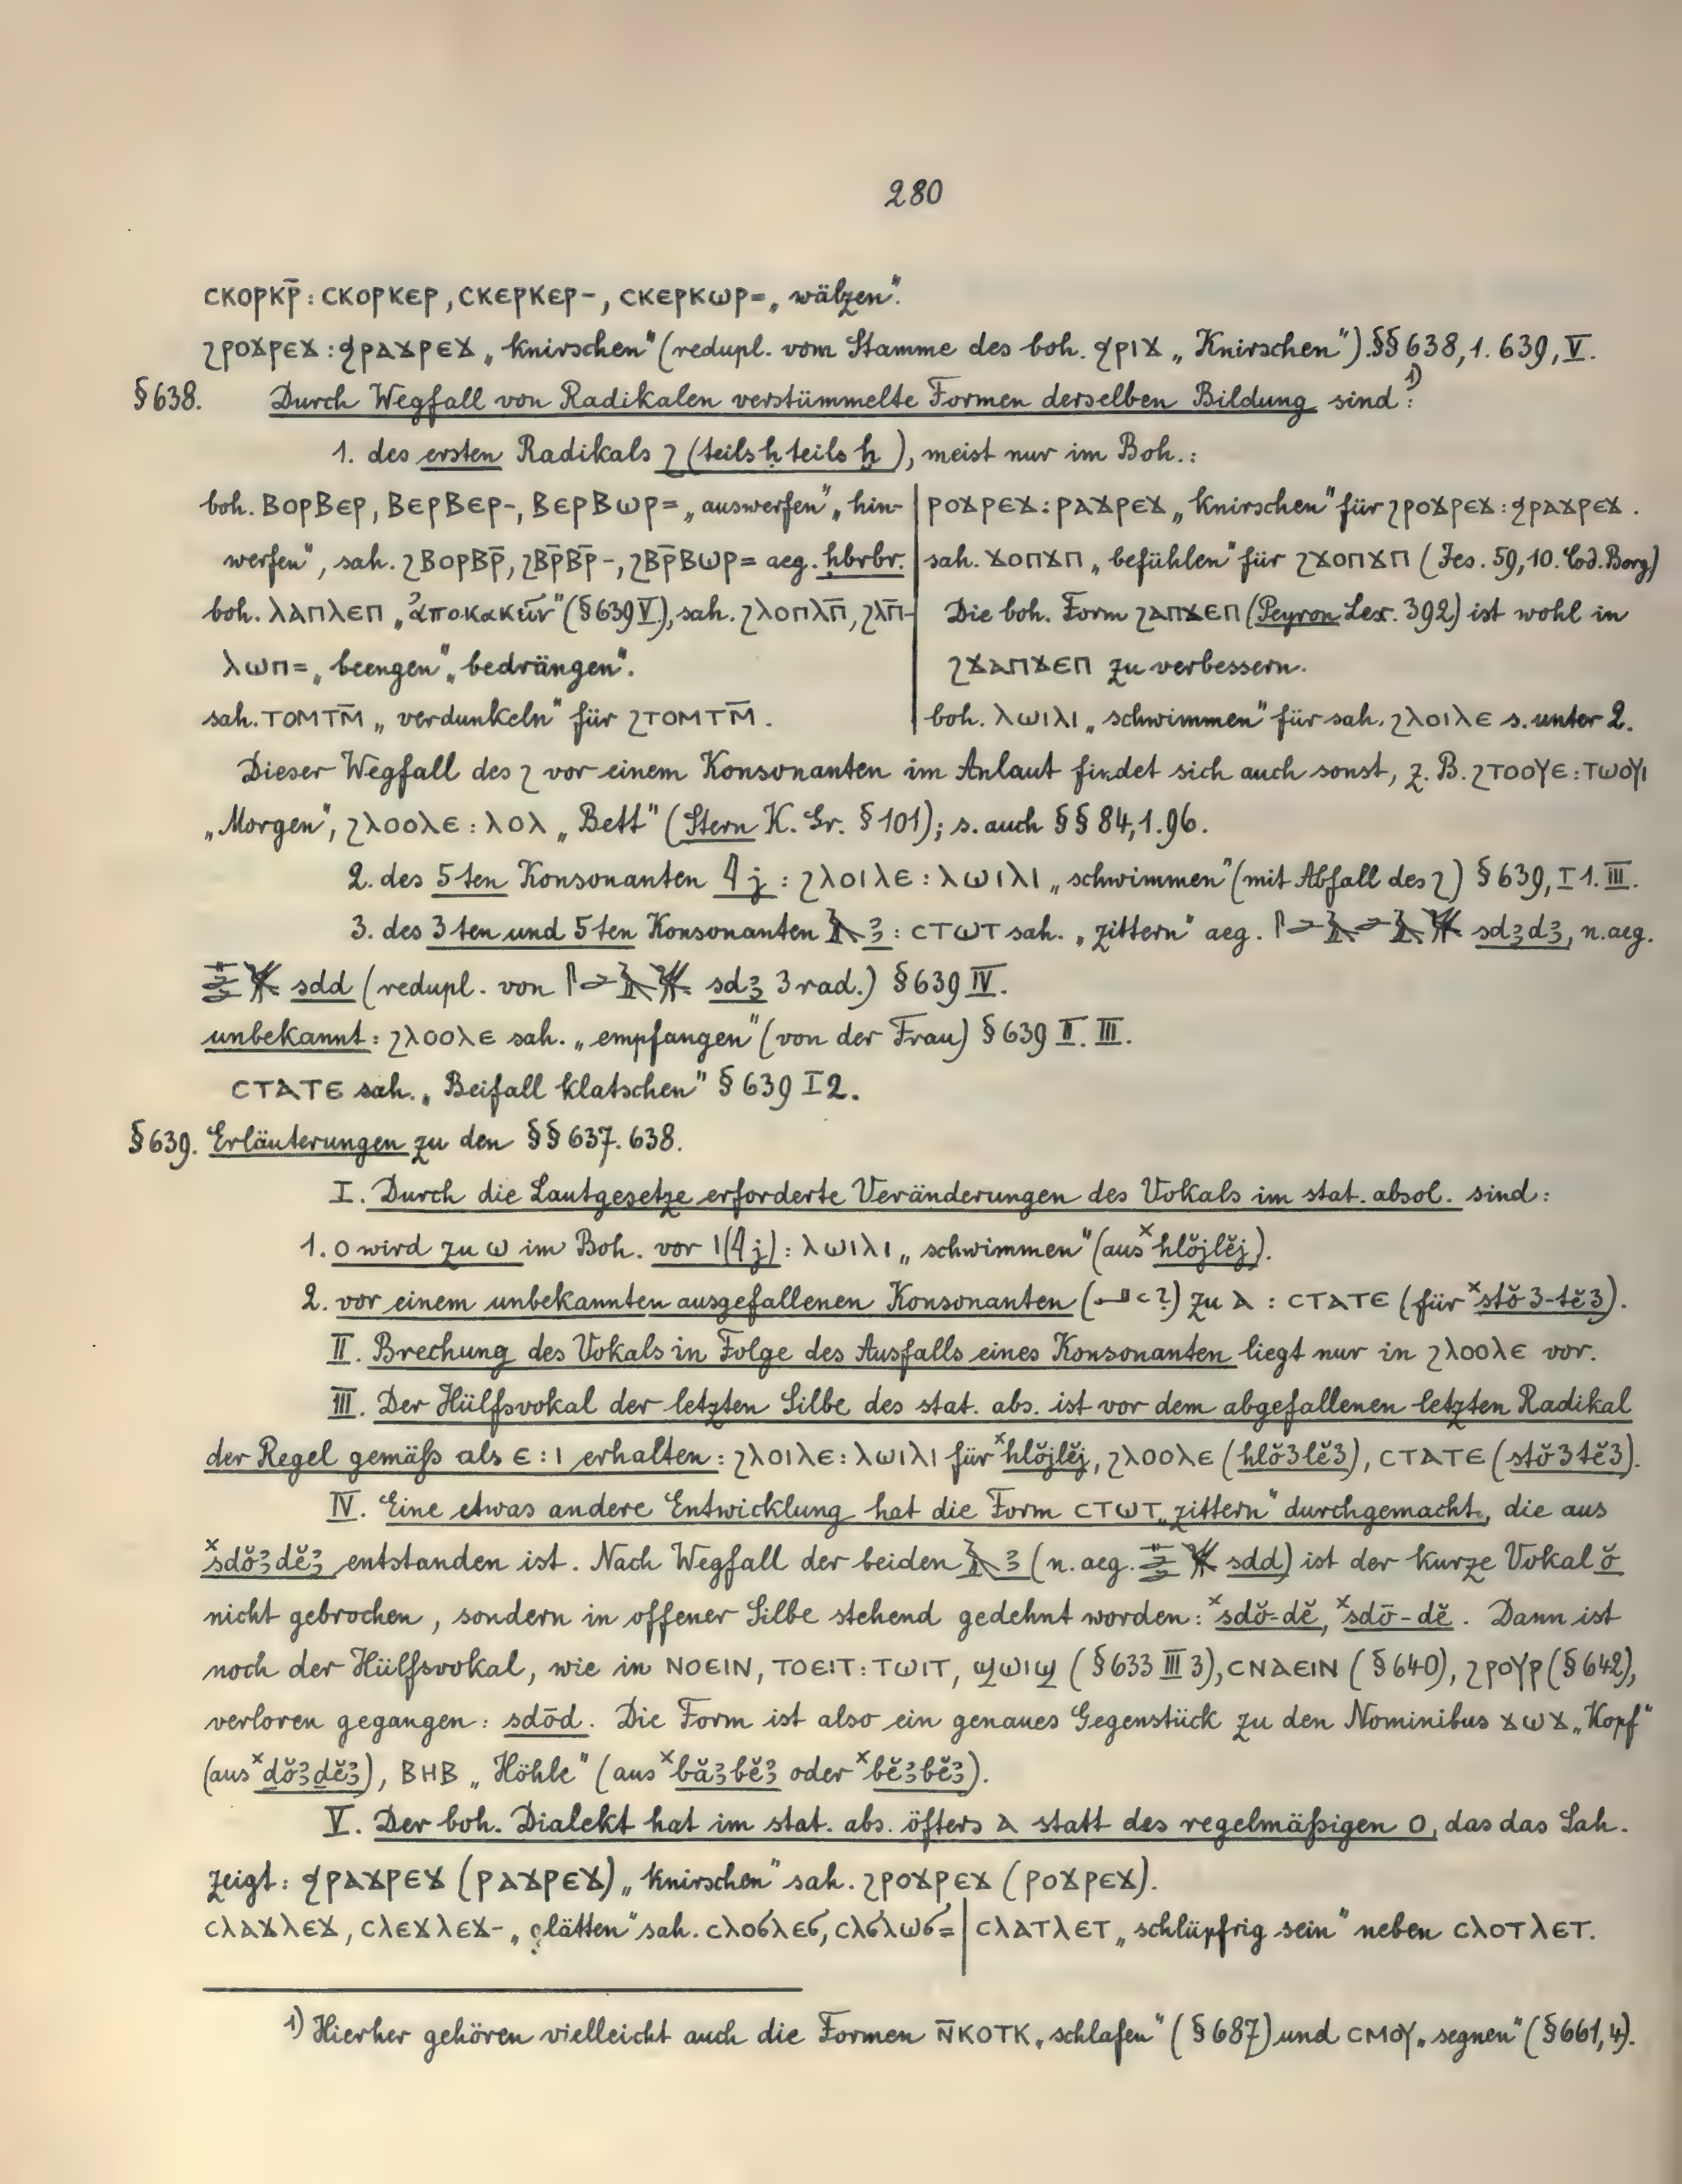 280
ⲥⲕⲟⲣⲕⲣ̄: ⲥⲕⲟⲣⲕⲉⲣ, ⲥⲕⲉⲣⲕⲉⲣ-, ⲥⲕⲉⲣⲕⲱⲣ= „wälzen“.
ϩⲣⲟϫⲣⲉϫ: ϧⲣⲁϫⲣⲉϫ „knirschen“ (redupl. vom Stamme des boh. ϧⲣⲓϫ „Knirschen“). §§ 638,1. 639, V.
§ 638. Durch Wegfall von Radikalen verstümmelte Formen derselben Bildung sind: 1)
1. des ersten Radikals ϩ (teils ḥ teils ḫ), meist nur im Boh.:
boh. ⲃⲟⲣⲃⲉⲣ, ⲃⲉⲣⲃⲉⲣ-, ⲃⲉⲣⲃⲱⲣ= „auswerfen“ „hin-
werfen“, sah. ϩⲃⲟⲣⲃⲣ̄, ϩⲃⲣ̄ⲃⲣ̄-, ϩⲃⲣ̄ⲃⲱⲣ= aeg. ḥbrbr.
boh. ⲗⲁⲡⲗⲉⲡ „ἀποκακεῖν“ (§ 639 V), sah. ϩⲗⲟⲡⲗⲡ̄, ϩⲗⲡ̄-
ⲗⲱⲡ= „beengen“ „bedrängen“.
sah. ⲧⲟⲙⲧⲙ̄ „verdunkeln“ für ϩⲧⲟⲙⲧⲙ̄.
ⲣⲟϫⲣⲉϫ: ⲣⲁϫⲣⲉϫ „knirschen“ für ϩⲣⲟϫⲣⲉϫ: ϧⲣⲁϫⲣⲉϫ.
sah. ϫⲟⲡϫⲡ „befühlen“ für ϩϫⲟⲡϫⲡ (Jes. 59,10. Cod. Borg)
Die boh. Form ϩⲁⲡϫⲉⲡ (Peyron Lex. 392) ist wohl in
ϩϫⲁⲡϫⲉⲡ zu verbessern.
boh. ⲗⲱⲓⲗⲓ „schwimmen“ für sah. ϩⲗⲟⲓⲗⲉ s. unter 2.
Dieser Wegfall des ϩ vor einem Konsonanten im Anlaut findet sich auch sonst, z. B. ϩⲧⲟⲟⲩⲉ: ⲧⲱⲟⲩⲓ
„Morgen“, ϩⲗⲟⲟⲗⲉ: ⲗⲟⲗ „Bett“ (Stern K. Gr. § 101); s. auch §§ 84,1. 96.
2. des 5ten Konsonanten 𓇋 j: ϩⲗⲟⲓⲗⲉ: ⲗⲱⲓⲗⲓ „schwimmen“ (mit Abfall des ϩ) § 639, I 1. III.
3. des 3ten und 5ten Konsonanten 𓄿 ꜣ: ⲥⲧⲱⲧ sah. „zittern“ aeg. sdꜣdꜣ, n.aeg.
sdd (redupl. von sdꜣ 3 rad.) § 639 IV.
unbekannt: ϩⲗⲟⲟⲗⲉ sah. „empfangen“ (von der Frau) § 639 II. III.
ⲥⲧⲁⲧⲉ sah. „Beifall klatschen“ § 639 I 2.
§ 639. Erläuterungen zu den §§ 637. 638.
I. Durch die Lautgesetze erforderte Veränderungen des Vokals im stat. absol. sind:
1. ⲟ wird zu ⲱ im Boh. vor ⲓ (𓇋 j): ⲗⲱⲓⲗⲓ „schwimmen“ (aus ˣhlŏjlĕj).
2. vor einem unbekannten ausgefallenen Konsonanten (𓂝 ꜥ ?) zu ⲁ: ⲥⲧⲁⲧⲉ (für ˣstŏ 3-tĕ 3).
II. Brechung des Vokals in Folge des Ausfalls eines Konsonanten liegt nur in ϩⲗⲟⲟⲗⲉ vor.
III. Der Hülfsvokal der letzten Silbe des stat. abs. ist vor dem abgefallenen letzten Radikal
der Regel gemäß als ⲉ: ⲓ erhalten: ϩⲗⲟⲓⲗⲉ: ⲗⲱⲓⲗⲓ für ˣhlŏjlĕj, ϩⲗⲟⲟⲗⲉ (hlŏ3lĕ3), ⲥⲧⲁⲧⲉ (stŏ3tĕ3).
IV. Eine etwas andere Entwicklung hat die Form ⲥⲧⲱⲧ „zittern“ durchgemacht, die aus
ˣsdŏꜣdĕꜣ entstanden ist. Nach Wegfall der beiden 𓄿 ꜣ (n. aeg. sdd) ist der kurze Vokal ŏ
nicht gebrochen, sondern in offener Silbe stehend gedehnt worden: ˣsdŏ-dĕ, ˣsdō-dĕ. Dann ist
noch der Hülfsvokal, wie in ⲛⲟⲉⲓⲛ, ⲧⲟⲉⲓⲧ: ⲧⲱⲓⲧ, ϣⲱⲓϣ (§ 633 III 3), ⲥⲛⲁⲉⲓⲛ (§ 640), ϩⲣⲟⲩⲣ (§ 642),
verloren gegangen: sdōd. Die Form ist also ein genaues Gegenstück zu den Nominibus ϫⲱϫ „Kopf“
(aus ˣḏŏꜣḏĕꜣ), ⲃⲏⲃ „Höhle“ (aus ˣbăꜣbĕꜣ oder ˣbĕꜣbĕꜣ).
V. Der boh. Dialekt hat im stat. abs. öfters ⲁ statt des regelmäßigen ⲟ, das das Sah.
zeigt: ϧⲣⲁϫⲣⲉϫ (ⲣⲁϫⲣⲉϫ) „knirschen“ sah. ϩⲣⲟϫⲣⲉϫ (ⲣⲟϫⲣⲉϫ).
ⲥⲗⲁϫⲗⲉϫ, ⲥⲗⲉϫⲗⲉϫ- „glätten“ sah. ⲥⲗⲟϭⲗⲉϭ, ⲥⲗϭⲗⲱϭ= | ⲥⲗⲁⲧⲗⲉⲧ „schlüpfrig sein“ neben ⲥⲗⲟⲧⲗⲉⲧ.
1) Hierher gehören vielleicht auch die Formen ⲛ̄ⲕⲟⲧⲕ „schlafen“ (§ 687) und ⲥⲙⲟⲩ „segnen“ (§ 661,4).